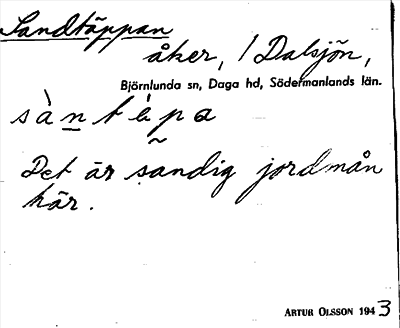 Sandtäppan
åker, / Dalsjön,
Björnlunda sn, Daga hd, Södermanlands län.
sàntèpa
Det är sandig jordmån
här.
ARTUR OLSSON 1943